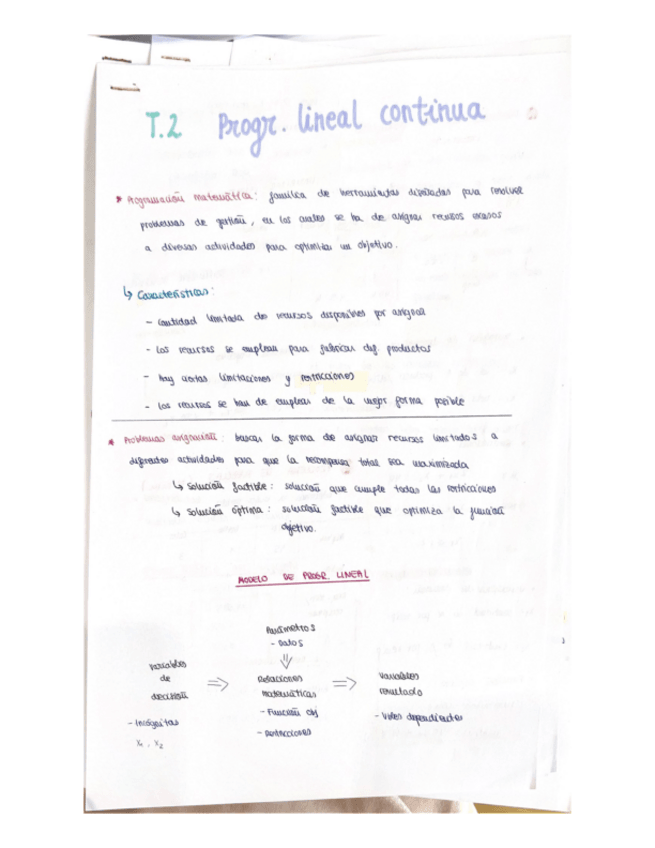 T.2 Progr. lineal continua
* Programación matemática: familia de herramientas diseñadas para resolver
problemas de gestión, en los cuales se ha de asignar recursos escasos
a diversas actividades para optimizar un objetivo.
↳ Características:
- Cantidad limitada de recursos disponibles por asignar
- Los recursos se emplean para fabricar dif. productos
- Hay ciertas limitaciones y restricciones
- Los recursos se han de emplear de la mejor forma posible
* Problemas asignación: buscar la forma de asignar recursos limitados a
diferentes actividades para que la recompensa total sea maximizada
↳ Solución factible: solución que cumple todas las restricciones
↳ Solución óptima: solución factible que optimiza la función
objetivo.
MODELO DE PROGR. LINEAL
Parámetros
- Datos
⇓
Variables
de
decisión
- Incógnitas
X₁, X₂
⇒
Relaciones
matemáticas
- Función obj
- Restricciones
⇒
Variables
resultado
- Vbles dependientes